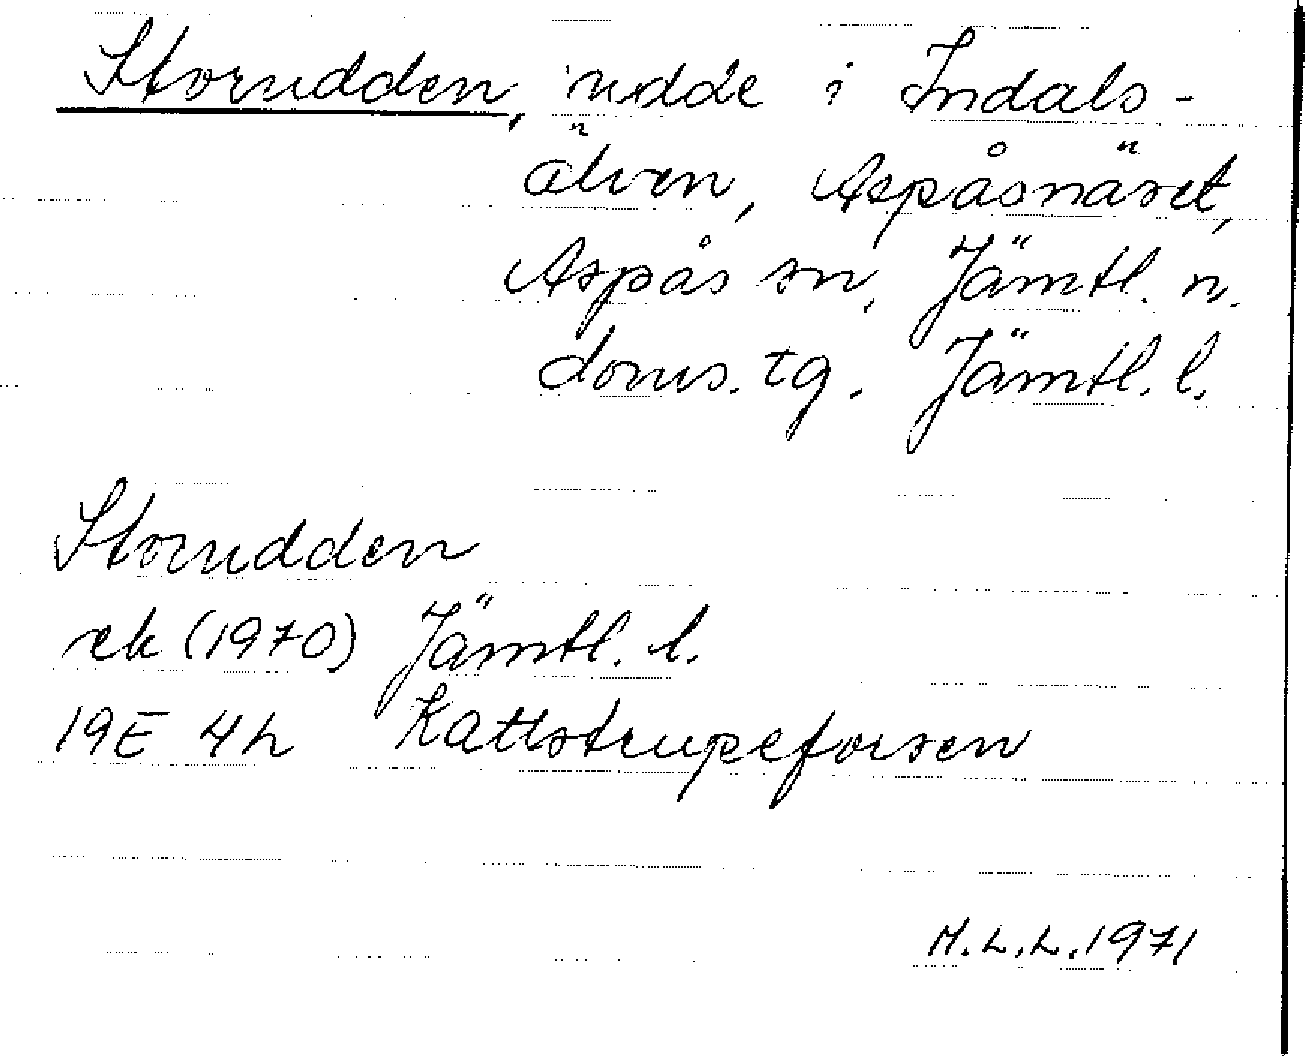 Storudden, udde i Indals-
älven, Aspåsnäset,
Aspås sn, Jämtl. n.
doms. tg. Jämtl. l.
Storudden
rek (1970) Jämtl. l.
19E 4h Kattstrupeforsen
M.L.L. 1971